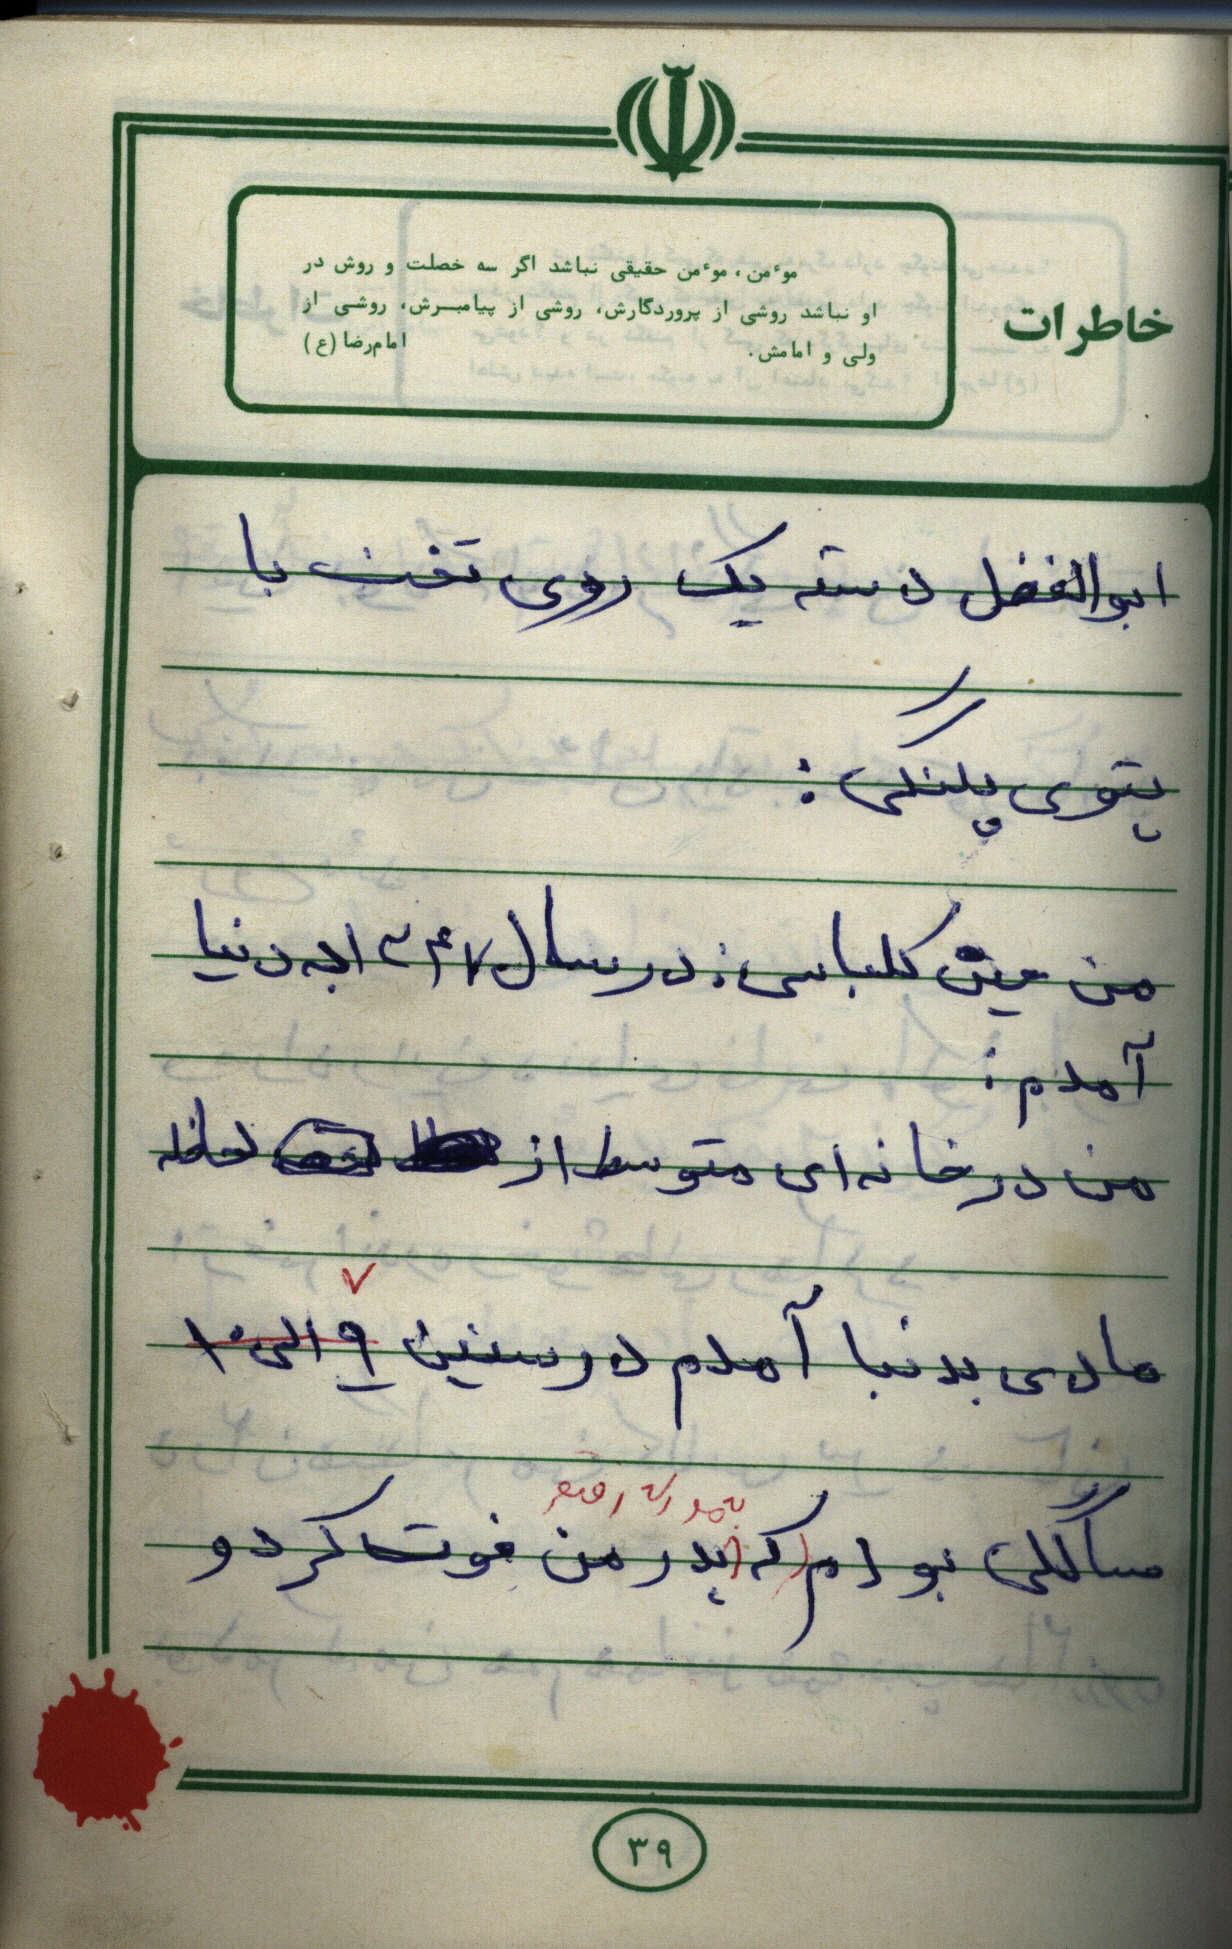 خاطرات
موٴمن، موٴمن حقیقی نباشد اگر سه خصلت و روش در
او نباشد روشی از پروردگارش، روشی از پیامبرش، روشی از
ولی و امامش. امام‌رضا (ع)
ابوالفضل دسته یک روی تخت با
پتوی پلنگی :
من کلباسی : در سال به دنیا
آمدم :
من در خانه‌ای متوسط از لحاظ
مادی بدنیا آمدم در سنین ۹ الی ۱۰
۷
سالگی بودم که پدر من فوت کرد و
۳۹